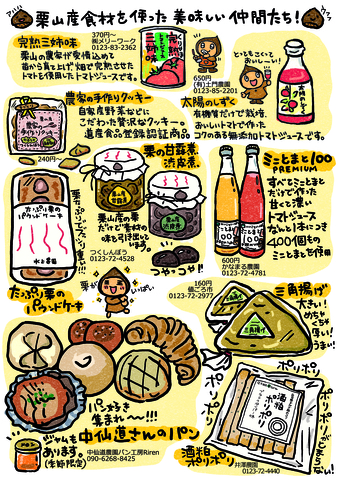 栗山産食材を使った美味しい仲間たち！
完熟三姉妹
370円〜
㈱メリーワーク
0123-83-2362
栗山の農家が愛情込めて
苗から育て上げ畑で完熟させた
トマトを使用したトマトジュースです。
三姉妹
650円
(有)土門農園
0123-85-2201
とってもこくて
おいしーい！
太陽のしずく
有機質だけで栽培、
おいしいトマトで作った
コクのある無添加トマトジュースです。
農家の手作りクッキー
自家産野菜などに
こだわった贅沢なクッキー。
道産食品登録認証商品
手作りクッキー
240円〜
栗の甘露煮、
渋皮煮
栗山産の栗
だけが素材の
味を引き出して
います。
つくしんぼう
0123-72-4528
つやっつや！
ミニとまと100
PREMIUM
すべてミニとまと
だけで作った
甘くて濃い
トマトジュース
なんと1本につき
400個もの
ミニとまとを使用
600円
かなまる農園
0123-72-4781
たっぷり栗の
パウンドケーキ
たっぷり栗の
パウンドケーキ
栗が
いっぱい
160円
値ごろ市
0123-72-2977
三角揚げ
大きい！
めちゃ
くちゃ
厚い！
うまい！
三角揚げ
パン好き
集まれ〜!!!
中仙道さんのパン
中仙道農園パン工房Riren
090-6268-8425
ジャムも
あります。
(季節限定)
ポリポリ
ポリポリ
酒粕
ポリポリ
酒粕
ポリポリ
井澤農園
0123-72-4440